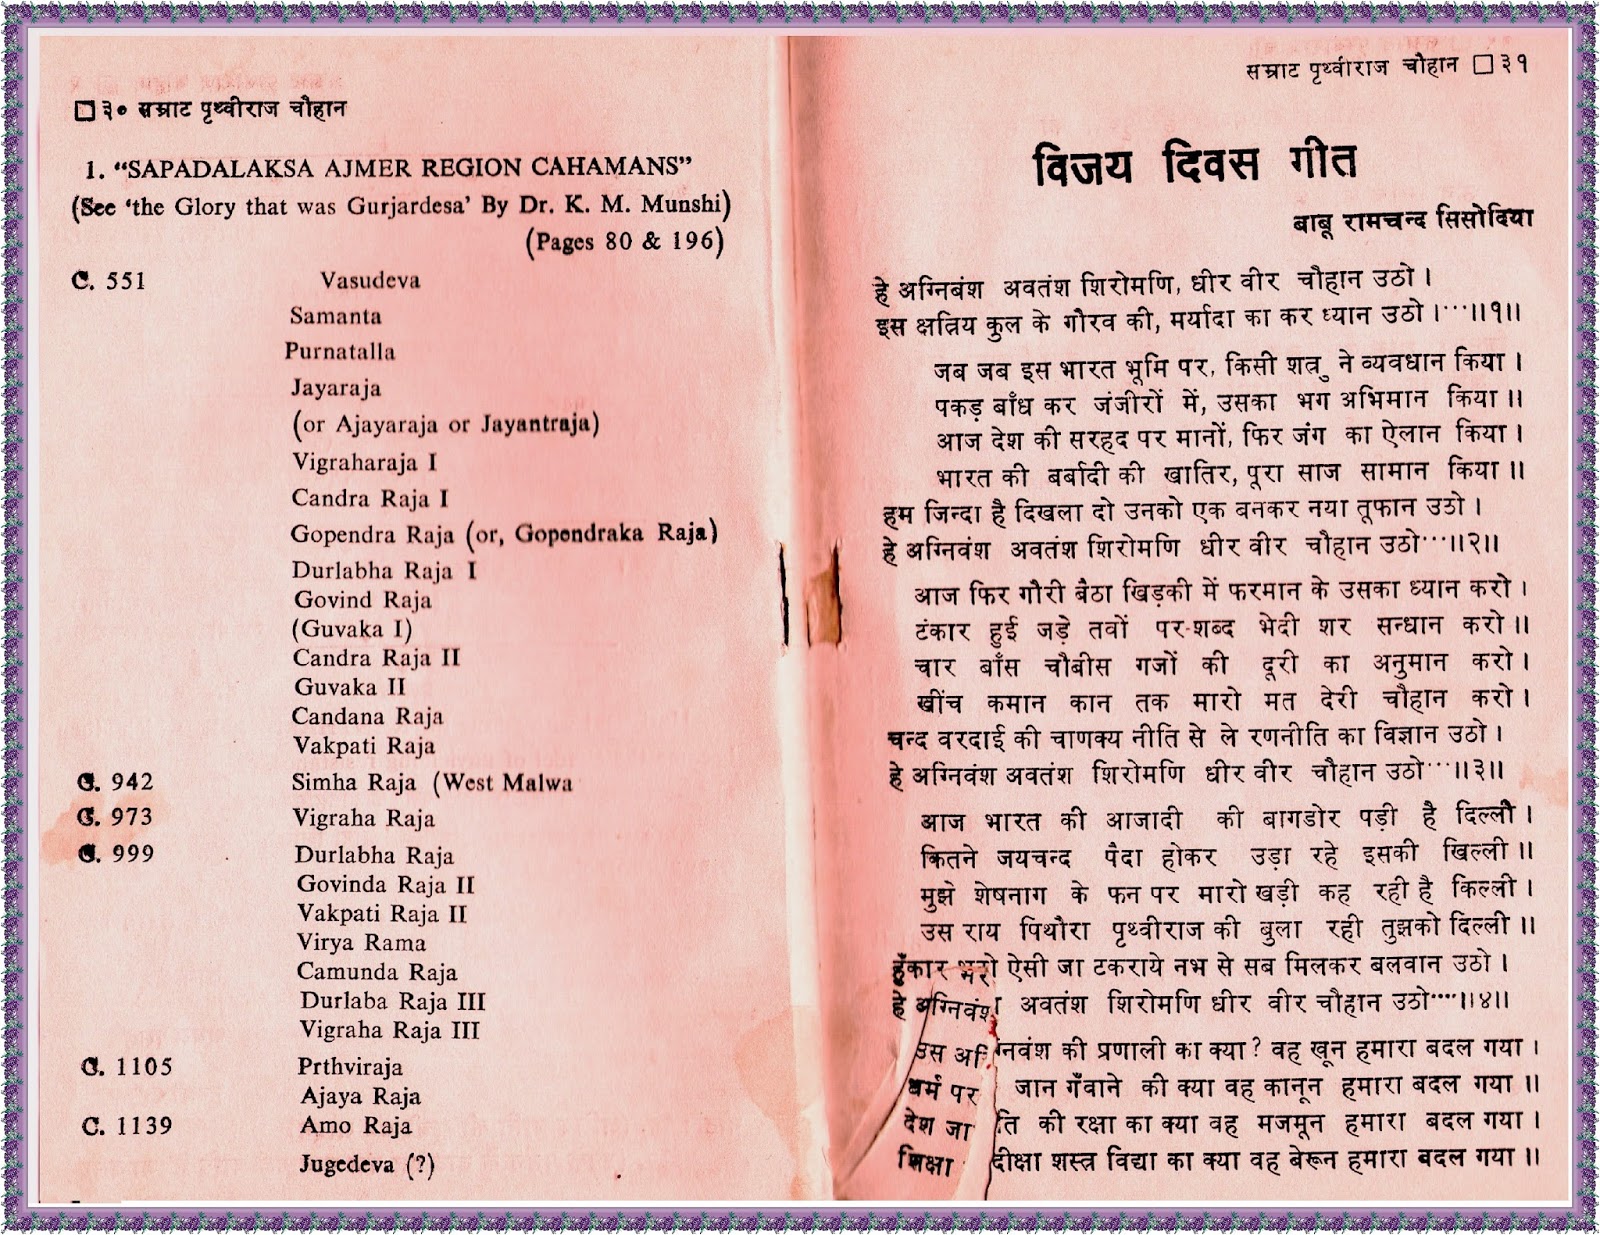 □३० सम्राट पृथ्वीराज चौहान
1. “SAPADALAKSA AJMER REGION CAHAMANS”
(See ‘the Glory that was Gurjardesa’ By Dr. K. M. Munshi)
(Pages 80 & 196)
C. 551 Vasudeva
Samanta
Purnatalla
Jayaraja
(or Ajayaraja or Jayantraja)
Vigraharaja I
Candra Raja I
Gopendra Raja (or, Gopendraka Raja)
Durlabha Raja I
Govind Raja
(Guvaka I)
Candra Raja II
Guvaka II
Candana Raja
Vakpati Raja
C. 942 Simha Raja (West Malwa
C. 973 Vigraha Raja
C. 999 Durlabha Raja
Govinda Raja II
Vakpati Raja II
Virya Rama
Camunda Raja
Durlaba Raja III
Vigraha Raja III
C. 1105 Prthviraja
Ajaya Raja
C. 1139 Amo Raja
Jugedeva (?)
सम्राट पृथ्वीराज चौहान □३१
विजय दिवस गीत
बाबू रामचन्द सिसोदिया
हे अग्निबंश अवतंश शिरोमणि, धीर वीर चौहान उठो ।
इस क्षत्रिय कुल के गौरव की, मर्यादा का कर ध्यान उठो ।···॥१॥
जब जब इस भारत भूमि पर, किसी शत्रु ने व्यवधान किया ।
पकड़ बाँध कर जंजीरों में, उसका भग अभिमान किया ॥
आज देश की सरहद पर मानों, फिर जंग का ऐलान किया ।
भारत की बर्बादी की खातिर, पूरा साज सामान किया ॥
हम जिन्दा है दिखला दो उनको एक बनकर नया तूफान उठो ।
हे अग्निवंश अवतंश शिरोमणि धीर वीर चौहान उठो···॥२॥
आज फिर गौरी बैठा खिड़की में फरमान के उसका ध्यान करो ।
टंकार हुई जड़े तवों पर-शब्द भेदी शर सन्धान करो ॥
चार बाँस चौबीस गजों की दूरी का अनुमान करो ।
खींच कमान कान तक मारो मत देरी चौहान करो ।
चन्द वरदाई की चाणक्य नीति से ले रणनीति का विज्ञान उठो ।
हे अग्निवंश अवतंश शिरोमणि धीर वीर चौहान उठो···॥३॥
आज भारत की आजादी की बागडोर पड़ी है दिल्ली ।
कितने जयचन्द पैदा होकर उड़ा रहे इसकी खिल्ली ॥
मुझे शेषनाग के फन पर मारो खड़ी कह रही है किल्ली ।
उस राय पिथौरा पृथ्वीराज की बुला रही तुझको दिल्ली ॥
हुँकार भरो ऐसी जा टकराये नभ से सब मिलकर बलवान उठो ।
हे अग्निवंश अवतंश शिरोमणि धीर वीर चौहान उठो····॥४॥
उस अग्निवंश की प्रणाली का क्या? वह खून हमारा बदल गया ।
धर्म पर जान गँवाने की क्या वह कानून हमारा बदल गया ॥
देश जाति की रक्षा का क्या वह मजमून हमारा बदल गया ।
शिक्षा दीक्षा शस्त्र विद्या का क्या वह बेरून हमारा बदल गया ॥